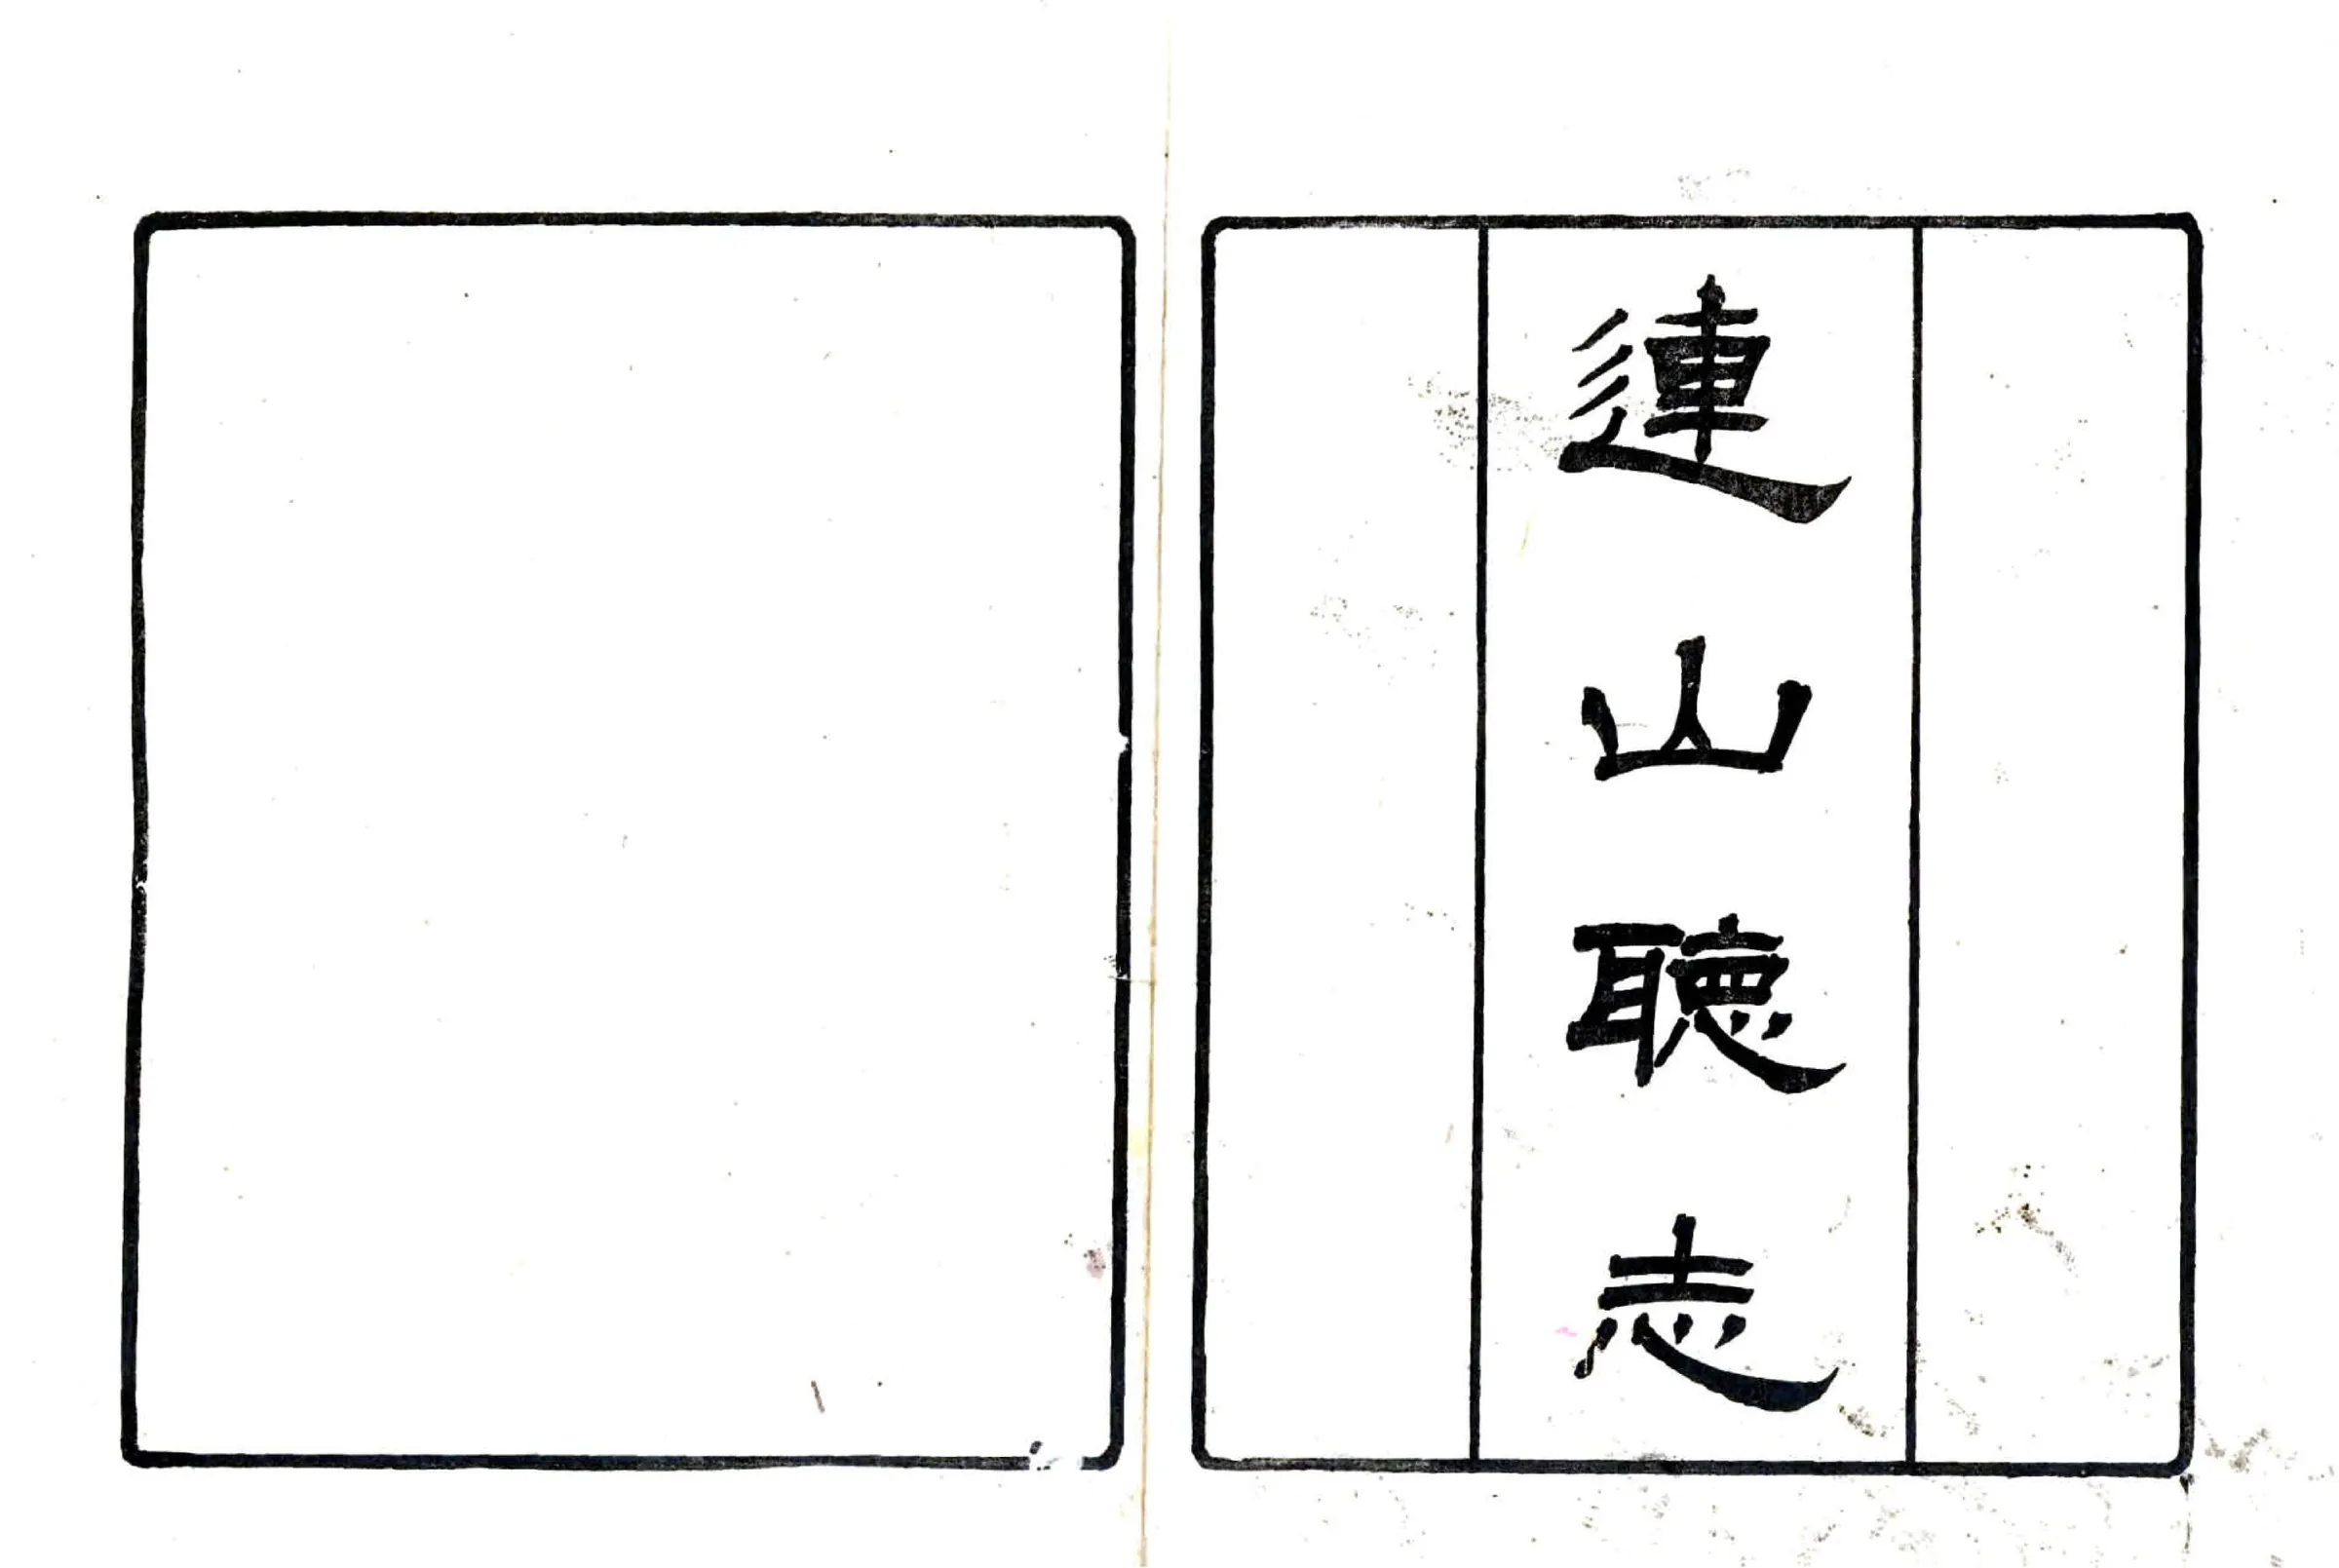 連山聽志